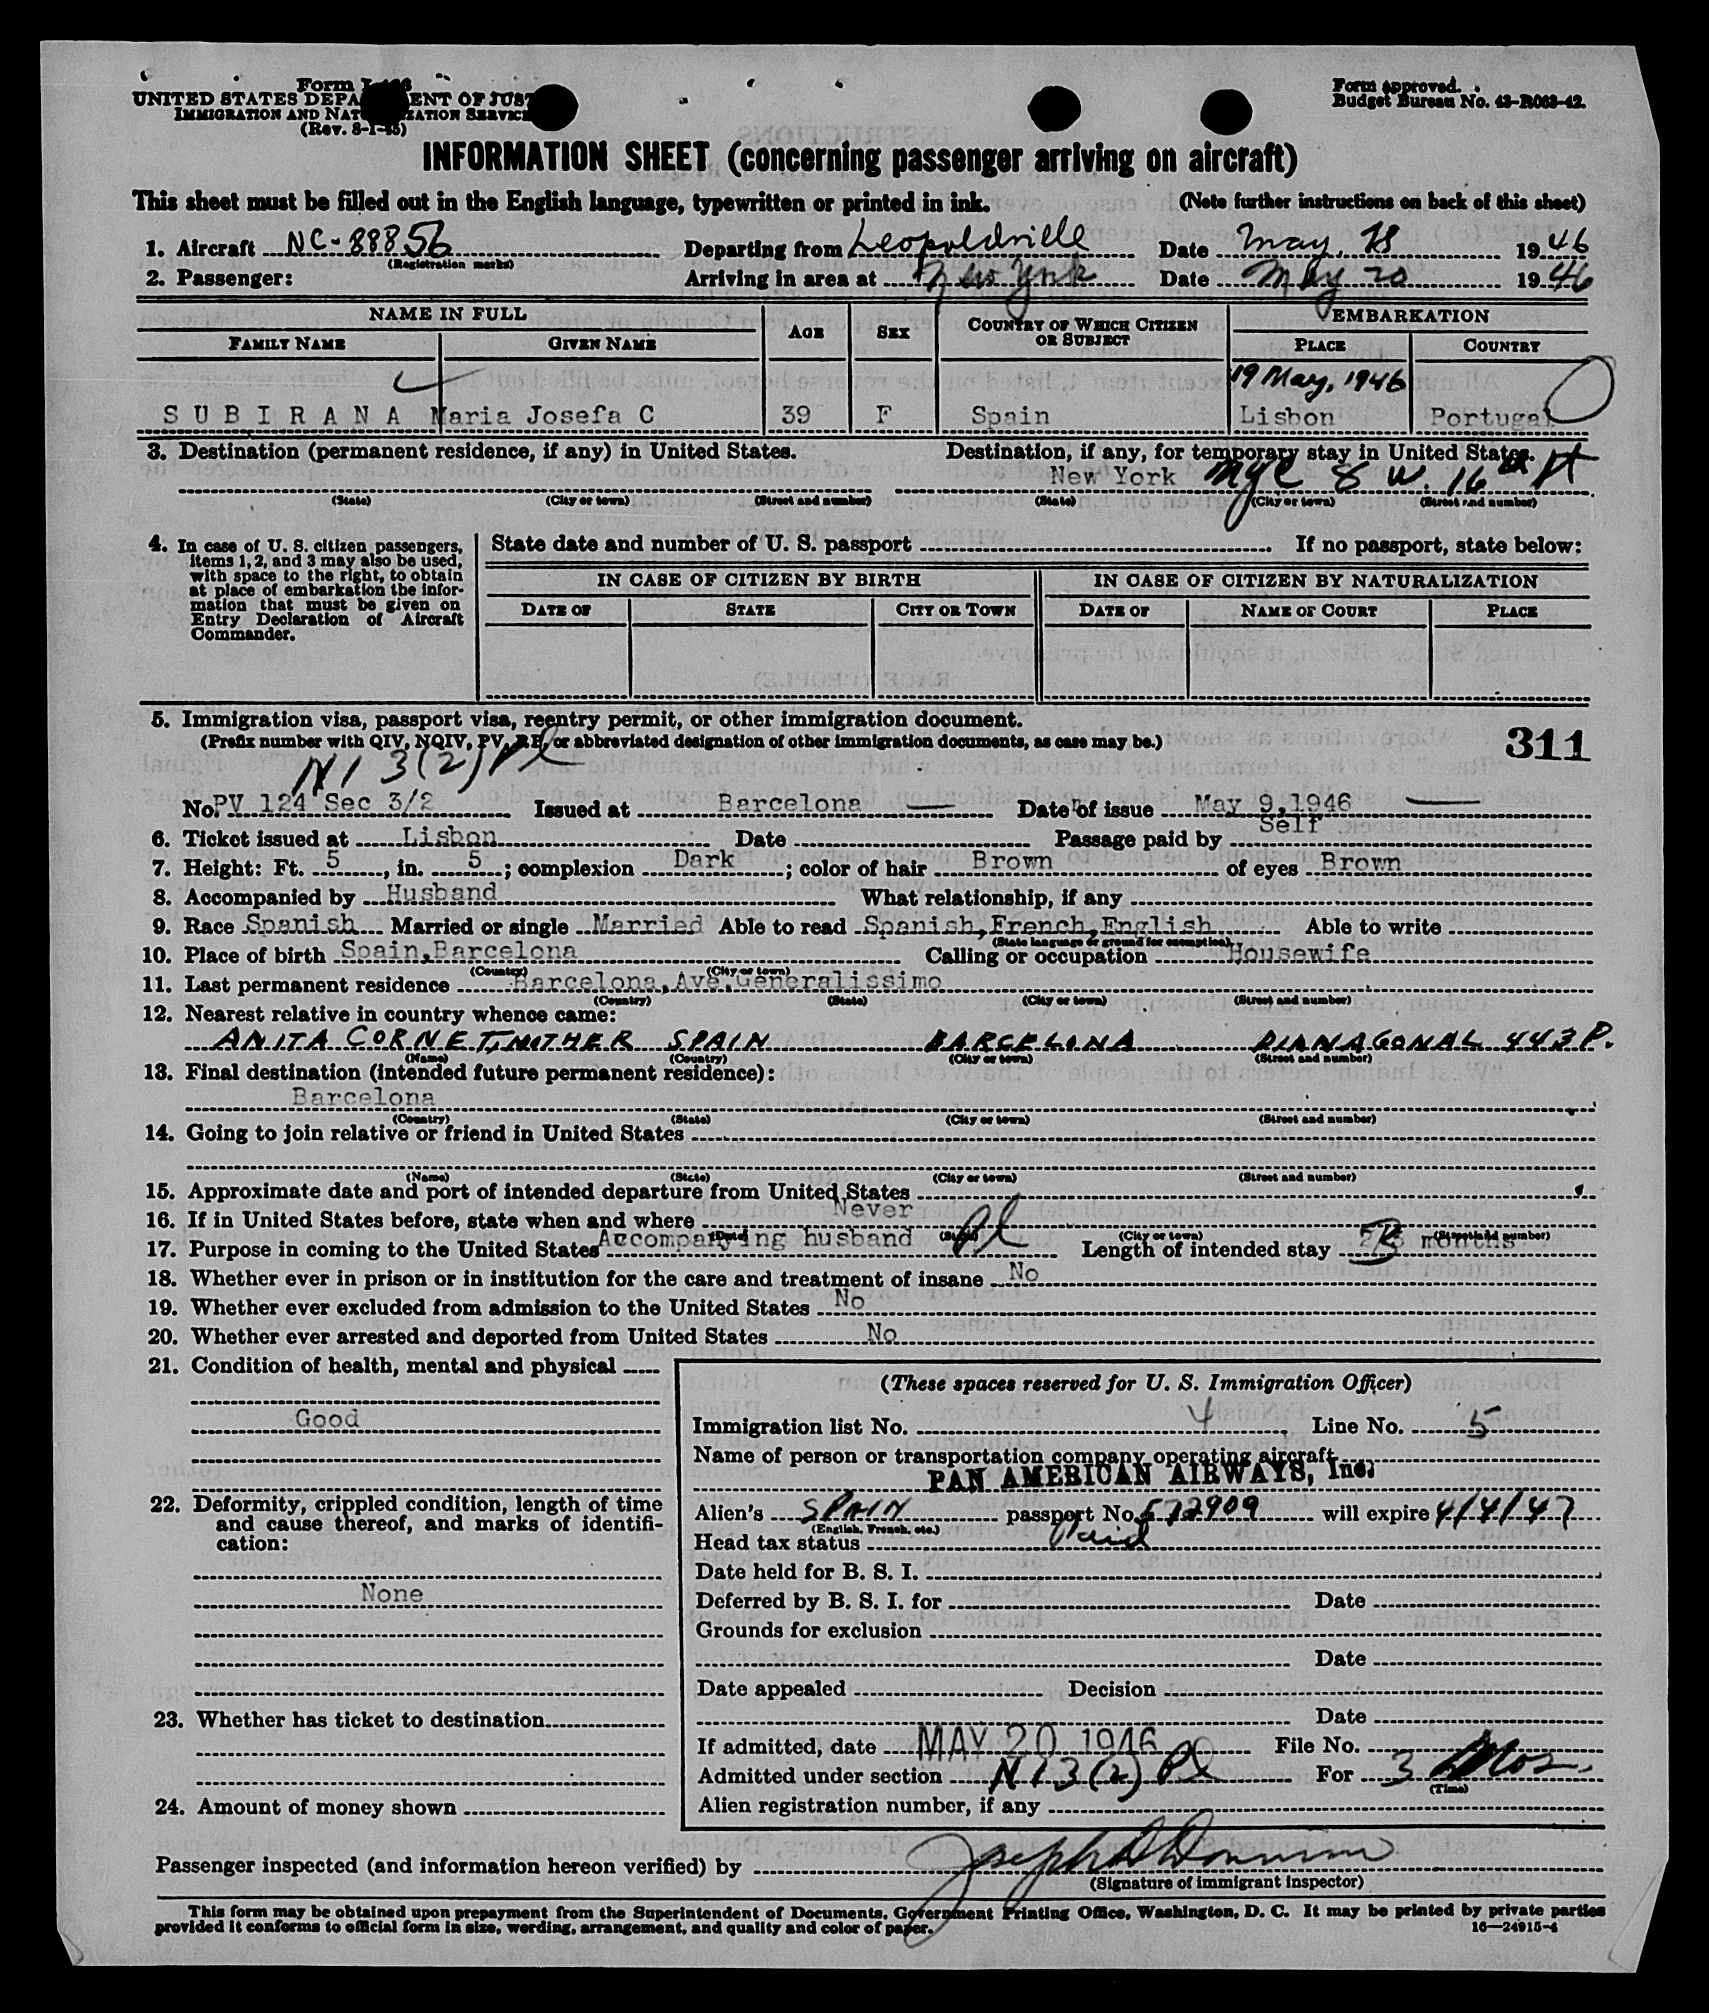 Form I-466
UNITED STATES DEPARTMENT OF JUSTICE
IMMIGRATION AND NATURALIZATION SERVICE
(Rev. 8-1-45)
Form approved.
Budget Bureau No. 43-R063-42.
INFORMATION SHEET (concerning passenger arriving on aircraft)
This sheet must be filled out in the English language, typewritten or printed in ink. (Note further instructions on back of this sheet)
1. Aircraft NC-88856 Departing from Leopoldville Date May, 18 1946
(Registration marks)
2. Passenger: Arriving in area at New York Date May 20 1946
NAME IN FULL AGE SEX COUNTRY OF WHICH CITIZEN OR SUBJECT EMBARKATION
FAMILY NAME GIVEN NAME PLACE COUNTRY
19 May, 1946
SUBIRANA Maria Josefa C 39 F Spain Lisbon Portugal
3. Destination (permanent residence, if any) in United States. Destination, if any, for temporary stay in United States.
New York NYC 8 W. 16th St
(State) (City or town) (Street and number) (State) (City or town) (Street and number)
4. In case of U. S. citizen passengers, items 1, 2, and 3 may also be used, with space to the right, to obtain at place of embarkation the information that must be given on Entry Declaration of Aircraft Commander.
State date and number of U. S. passport If no passport, state below:
IN CASE OF CITIZEN BY BIRTH IN CASE OF CITIZEN BY NATURALIZATION
DATE OF STATE CITY OR TOWN DATE OF NAME OF COURT PLACE
5. Immigration visa, passport visa, reentry permit, or other immigration document.
(Prefix number with QIV, NQIV, PV, RP, or abbreviated designation of other immigration documents, as case may be.)
311
N1 3(2) Pl
No. PV 124 Sec 3/2 Issued at Barcelona Date of issue May 9,1946
6. Ticket issued at Lisbon Date Passage paid by Self
7. Height: Ft. 5, in. 5; complexion Dark; color of hair Brown of eyes Brown
8. Accompanied by Husband What relationship, if any
9. Race Spanish Married or single Married Able to read Spanish,French,English Able to write
(State language or ground for exemption)
10. Place of birth Spain,Barcelona Calling or occupation Housewife
(Country) (City or town)
11. Last permanent residence Barcelona,Ave.Generalissimo
(Country) (State) (City or town) (Street and number)
12. Nearest relative in country whence came:
ANITA CORNET, MOTHER SPAIN BARCELONA DIANAGONAL 443 P.
(Name) (Country) (City or town) (Street and number)
13. Final destination (intended future permanent residence):
Barcelona
(Country) (State) (City or town) (Street and number)
14. Going to join relative or friend in United States
(Name) (State) (City or town) (Street and number)
15. Approximate date and port of intended departure from United States
16. If in United States before, state when and where Never
(Date) (State) (City or town) (Street and number)
17. Purpose in coming to the United States Accompanying husband Pl Length of intended stay 3 months
18. Whether ever in prison or in institution for the care and treatment of insane No
19. Whether ever excluded from admission to the United States No
20. Whether ever arrested and deported from United States No
21. Condition of health, mental and physical
Good
22. Deformity, crippled condition, length of time and cause thereof, and marks of identification:
None
23. Whether has ticket to destination
24. Amount of money shown
(These spaces reserved for U. S. Immigration Officer)
Immigration list No. 4 Line No. 5
Name of person or transportation company operating aircraft
PAN AMERICAN AIRWAYS, Inc.
Alien's SPAIN passport No. 572909 will expire 4/4/47
(English, French, etc.)
Head tax status Paid
Date held for B. S. I.
Deferred by B. S. I. for Date
Grounds for exclusion
Date
Date appealed Decision
Date
If admitted, date MAY 20 1946 File No.
Admitted under section N 1 3(2) Pl For 3 Mos.
(Time)
Alien registration number, if any
Passenger inspected (and information hereon verified) by
(Signature of immigrant inspector)
This form may be obtained upon prepayment from the Superintendent of Documents, Government Printing Office, Washington, D. C. It may be printed by private parties
provided it conforms to official form in size, wording, arrangement, and quality and color of paper. 16—24915-4